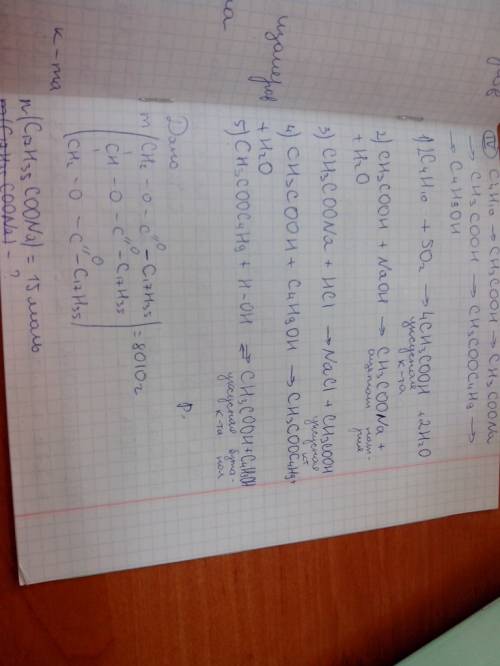 IV C4H10 → CH3COOH → CH3COONa
→ CH3COOH → CH3COOC4H9 →
→ C4H9OH
1) 2C4H10 + 5O2 → 4CH3COOH + 2H2O
уксусная
к-та
2) CH3COOH + NaOH → CH3COONa +
+ H2O
ацетат нат-
рия
3) CH3COONa + HCl → NaCl + CH3COOH
уксусная
кт
4) CH3COOH + C4H9OH → CH3COOC4H9 +
+ H2O
5) CH3COOC4H9 + H-OH ⇄ CH3COOH + C4H9OH
уксусная бута-
к-та нол
Дано Р.
m (CH2 - O - C=O - C17H35
CH - O - C=O - C17H35
CH2 - O - C=O - C17H35) = 8010г
n(C17H35COONa) = 15 моль
m(C17H35COONa) - ?
изомеров
к-та